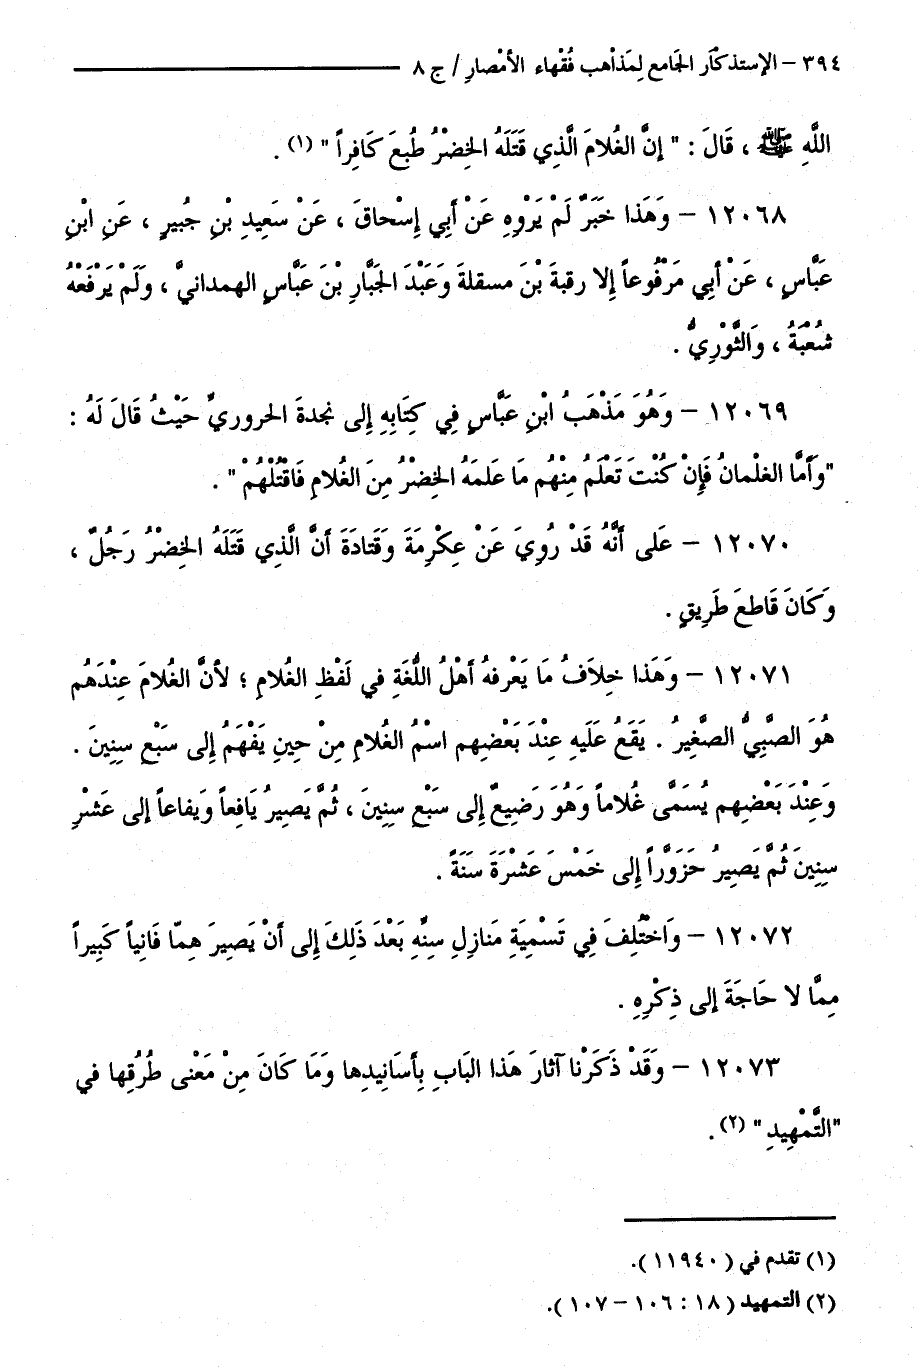 ٣٩٤ – الإستذكار الجَامع لِمَذاهب فُقهاء الأمْصارِ / ج ٨
اللَّهِ ﷺ ، قَالَ : " إنَّ الغُلامَ الَّذِي قَتَلَهُ الخِضْرُ طُبِعَ كَافِراً " (١) .
١٢٠٦٨ – وَهَذا خَبَرٌ لَمْ يَرْوِهِ عَنْ أَبِي إِسْحاقَ ، عَنْ سَعِيدِ بْنِ جُبيرٍ ، عَنِ ابْنِ
عَبَّاسٍ ، عَنْ أَبي مَرْفُوعاً إِلا رقبةَ بْنَ مسقلةَ وَعَبْدَ الجَبَّارِ بْنَ عَبَّاسٍ الهمدانيَّ ، وَلَمْ يَرْفَعْهُ
شُعْبَةُ ، وَالثَّوْرِيُّ .
١٢٠٦٩ – وَهُوَ مَذْهَبُ ابْنِ عَبَّاسٍ فِي كِتَابِهِ إِلى نجدةَ الحروريِّ حَيْثُ قَالَ لَهُ :
"وَأَمَّا الغلْمانُ فَإِنْ كُنْتَ تَعْلَمُ مِنْهُم مَا عَلمَهُ الخِضْرُ مِنَ الغُلامِ فَاقْتُلْهُمْ" .
١٢٠٧٠ – عَلى أَنَّهُ قَدْ رُوِيَ عَنْ عِكْرِمَةَ وَقَتَادَةَ أَنَّ الَّذِي قَتَلَهُ الخِضْرُ رَجُلٌ ،
وَكَانَ قَاطعَ طَرِيقٍ .
١٢٠٧١ – وَهَذا خِلافُ مَا يَعْرفهُ أَهْلُ اللُّغَةِ في لَفْظِ الغُلامِ ؛ لأنَّ الغُلامَ عِنْدَهُم
هُوَ الصَّبِيُّ الصَّغِيرُ . يَقَعُ عَلَيهِ عِنْدَ بَعْضِهِم اسْمُ الغُلامِ مِنْ حِينِ يَفْهَمُ إِلى سَبْعِ سِنِينَ .
وَعِنْدَ بَعْضِهِم يُسَمَّى غُلاماً وَهُوَ رَضِيعٌ إِلى سَبْعِ سِنِينَ ، ثُمَّ يَصِيرُ يَافِعاً وَيفاعاً إلى عَشْرِ
سِنِينَ ثُمَّ يَصِيرُ حَزَوَّراً إِلى خَمْسَ عَشْرَةَ سَنَةً .
١٢٠٧٢ – وَاخْتُلِفَ فِي تَسْمِيَةِ مَنَازِلِ سِنِّهِ بَعْدَ ذَلِكَ إِلى أَنْ يَصِيرَ هِمّا فَانِياً كَبِيراً
مِمَّا لا حَاجَةَ إلى ذِكْرِهِ .
١٢٠٧٣ – وَقَدْ ذَكَرْنا آثارَ هَذا البَابِ بِأَسَانِيدِها وَمَا كَانَ مِنْ مَعْنى طُرُقِها في
"التَّمْهِيدِ" (٢) .
(١) تقدم في ( ١١٩٤٠ ).
(٢) التمهيد ( ١٨ : ١٠٦ – ١٠٧ ).